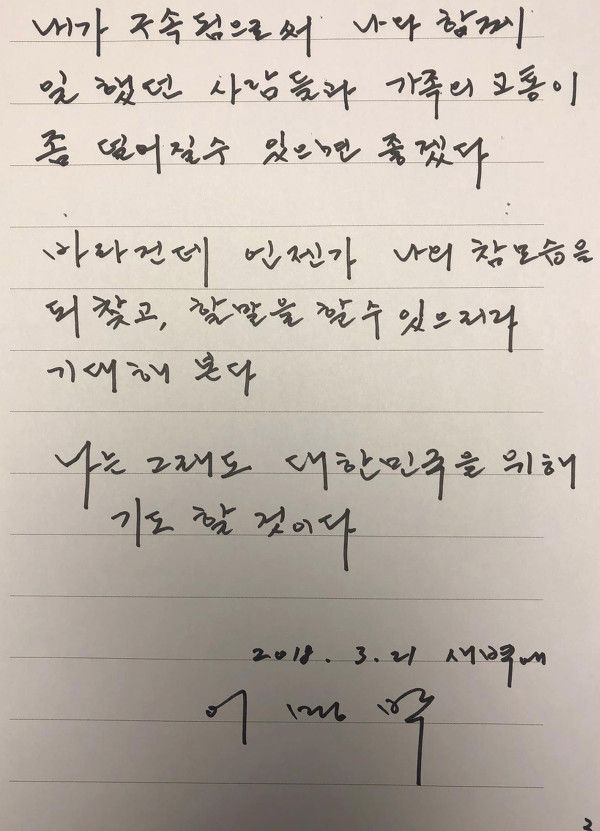 내가 구속됨으로써 나와 함께
일 했던 사람들과 가족의 고통이
좀 덜어질수 있으면 좋겠다
바라건데 언젠가 나의 참모습을
되 찾고, 할말을 할 수 있으리라
기대해 본다
나는 그래도 대한민국을 위해
기도 할 것이다
2018. 3. 21 새벽에
이 명 박
3